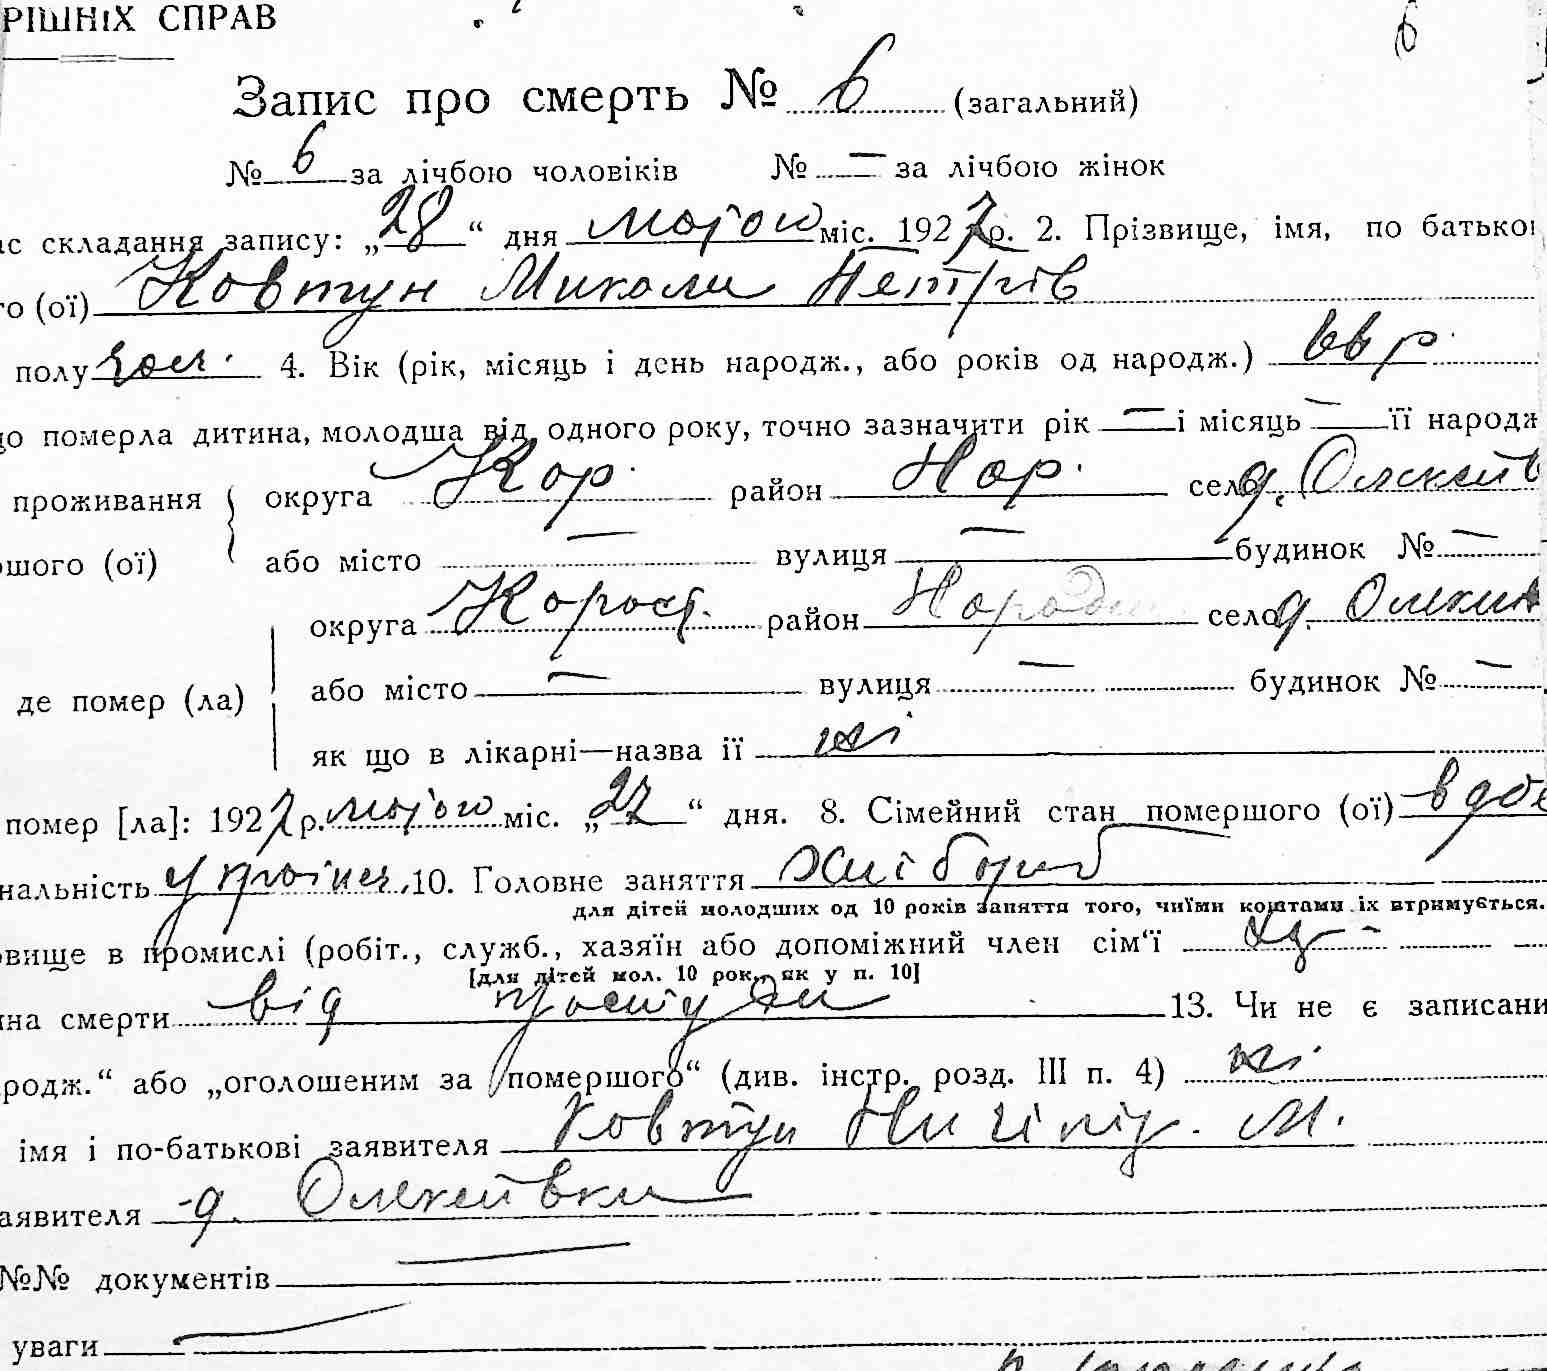 РІШНІХ СПРАВ
6
Запис про смерть № 6 (загальний)
№ 6 за лічбою чоловіків № — за лічбою жінок
ас складання запису: „28“ дня мойою міс. 1927 р. 2. Прізвище, імя, по батькові
го (ої) Ковтун Миколи Петрів
полу чол. 4. Вік (рік, місяць і день народж., або років од народж.) 66 р.
що померла дитина, молодша від одного року, точно зазначити рік — і місяць — її народж
проживання округа Кор. район Нар. село д. Олексеїв
ршого (ої) або місто — вулиця — будинок № —
округа Корост. район Народи село д.
де помер (ла) або місто — вулиця — будинок № —
як що в лікарні—назва її ні
помер [ла]: 1927 р. мойою міс. „27“ дня. 8. Сімейний стан помершого (ої) вдов
нальність україн. 10. Головне заняття хлібороб
для дітей молодших од 10 років заняття того, чиїми коштами їх втримується.
вище в промислі (робіт., служб., хазяїн або допоміжний член сім‘ї
[для дітей мол. 10 рок., як у п. 10]
на смерти від простуди 13. Чи не є записани
родж.“ або „оголошеним за помершого“ (див. інстр. розд. III п. 4) ні
імя і по-батькові заявителя Ковтун Ничіпір. М.
аявителя д. Олексеївки
№№ документів —
уваги —